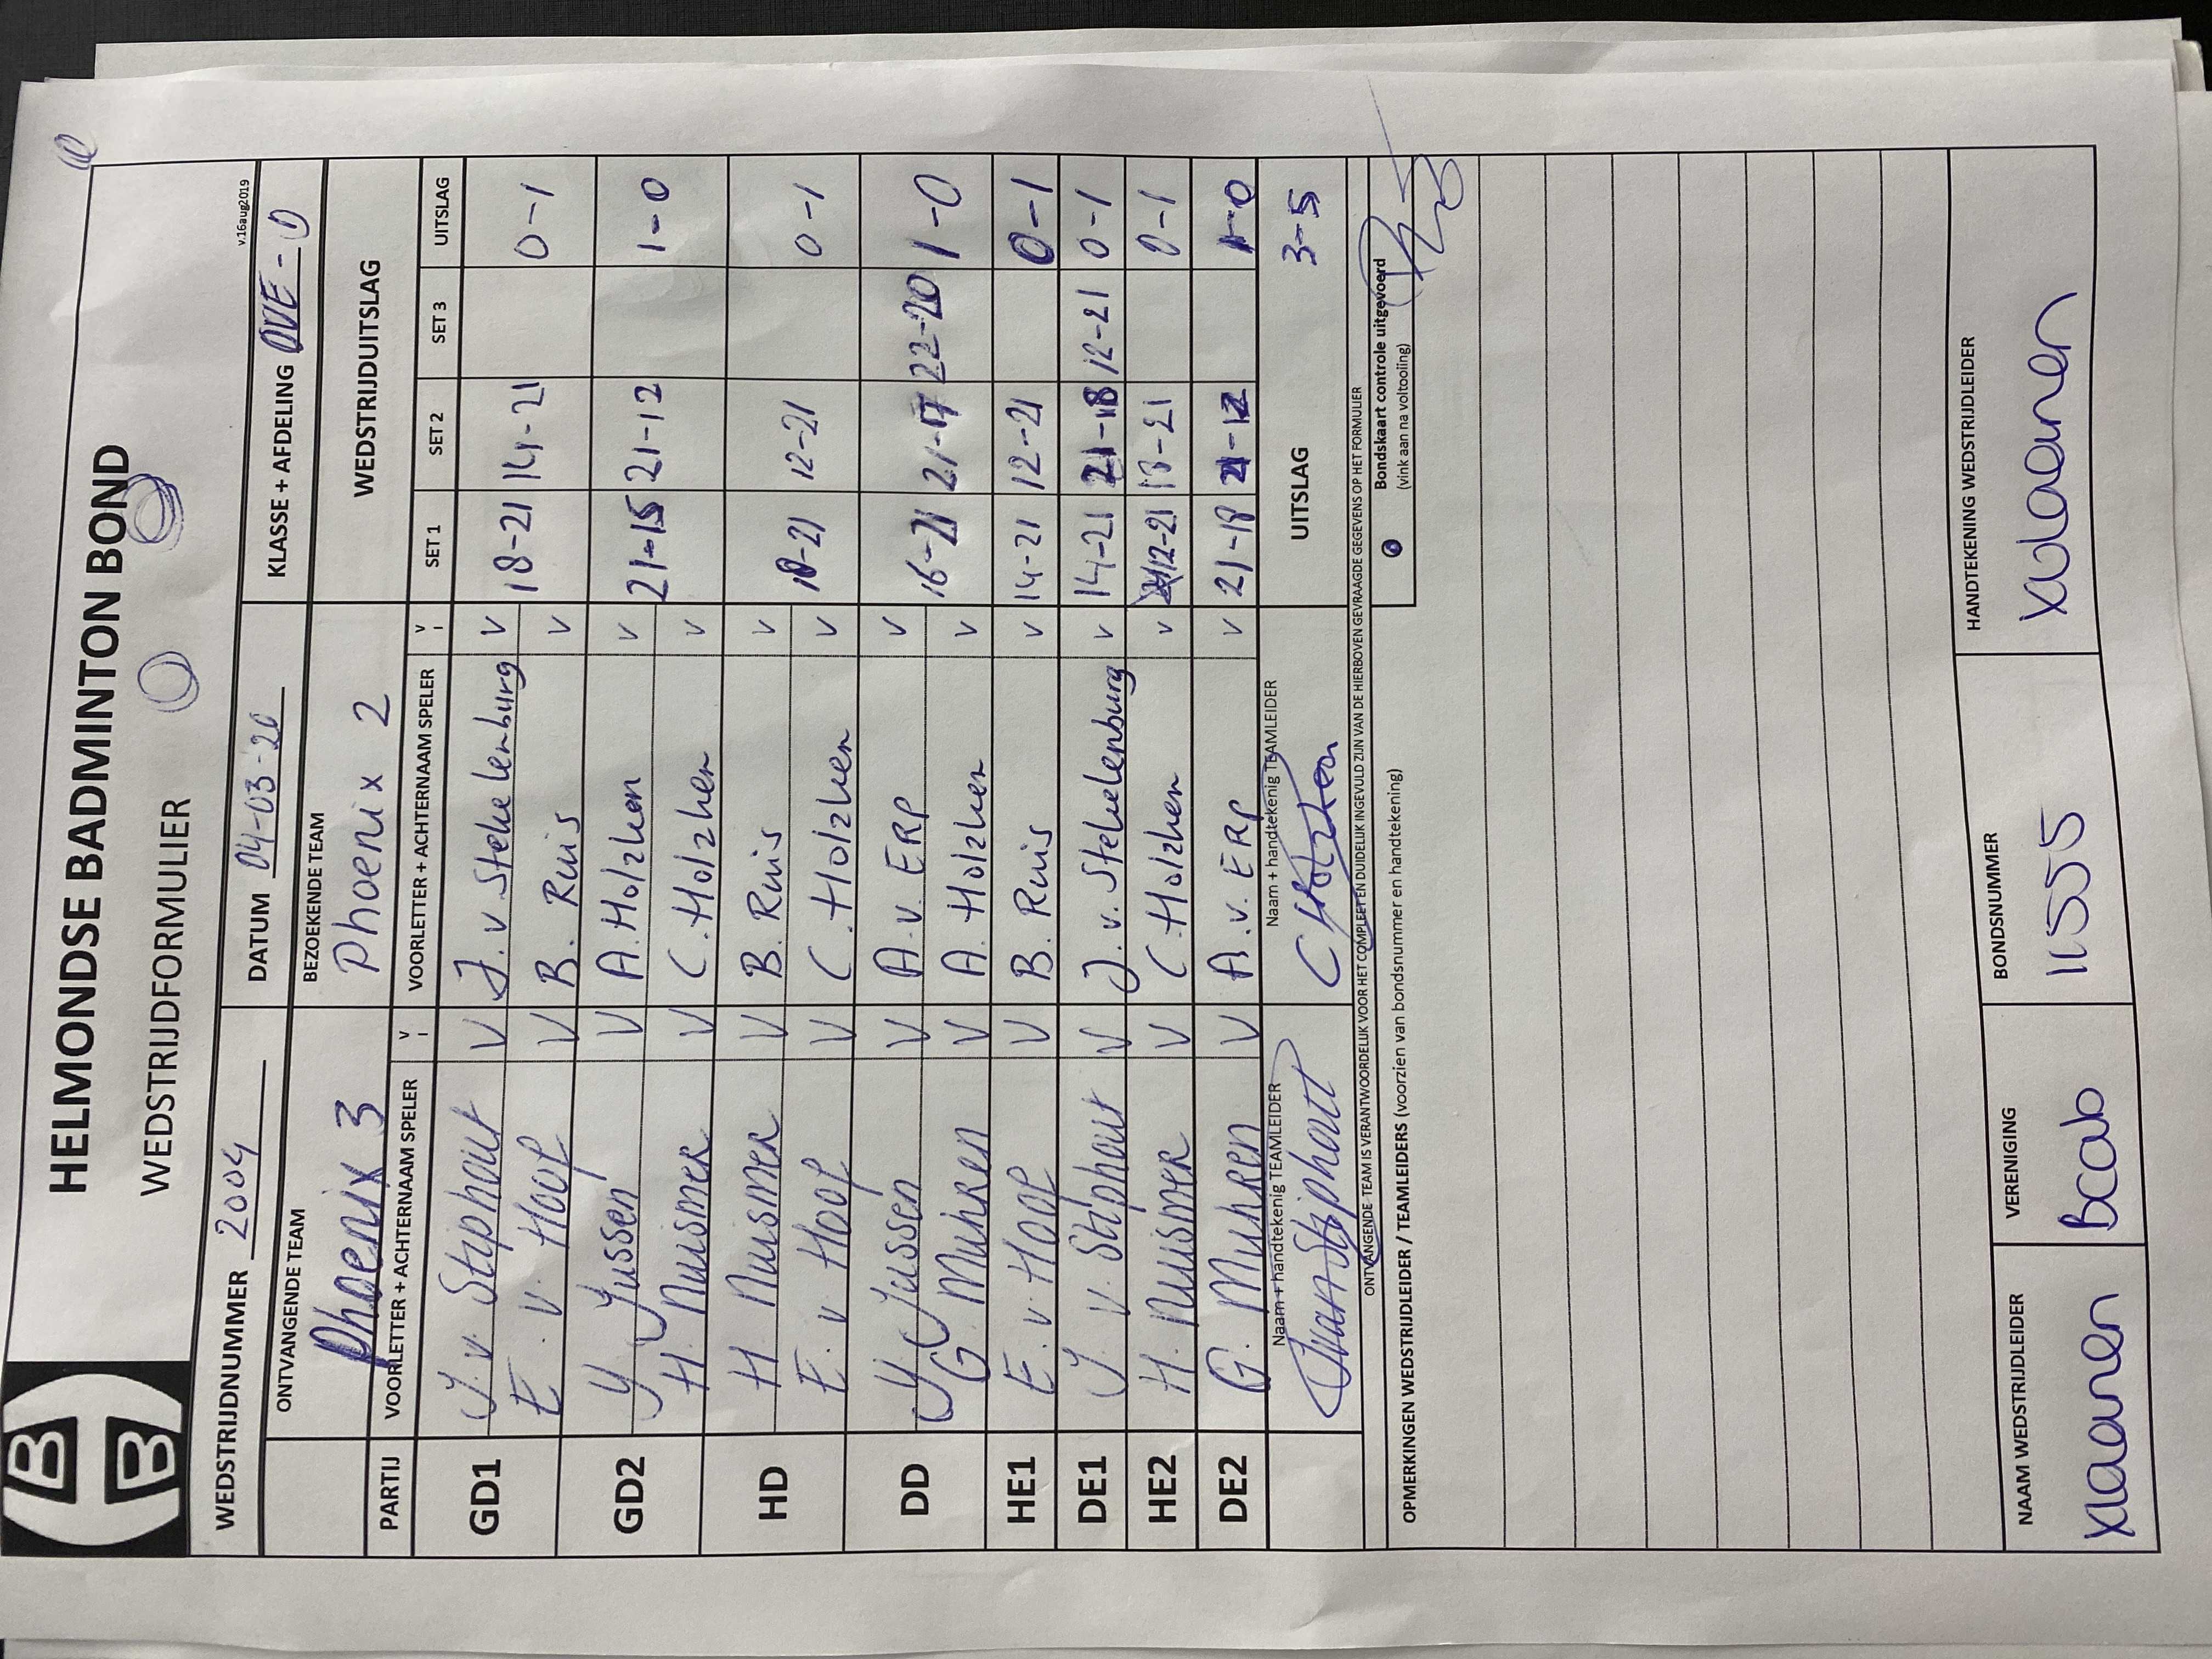 HELMONDSE BADMINTON BOND
WEDSTRIJDFORMULIER
v.16aug2019
WEDSTRIJDNUMMER 2004 DATUM 04-03-20 KLASSE + AFDELING OVE - D
ONTVANGENDE TEAM BEZOEKENDE TEAM WEDSTRIJDUITSLAG
Phoenix 3 Phoenix 2
PARTIJ VOORLETTER + ACHTERNAAM SPELER V VOORLETTER + ACHTERNAAM SPELER V SET 1 SET 2 SET 3 UITSLAG
GD1 J. v Stiphout V J. v Stekelenburg V 18-21 14-21 0-1
E. v. Hoof V B. Ruis V
GD2 Y Jussen V A. Holzken V 21-15 21-12 1-0
H. Nusmer V C. Holzken V
HD H Nusmer V B. Ruis V 18-21 12-21 0-1
E. v. Hoof V C. Holzken V
DD Y Jussen V A. v. ERP V 16-21 21-17 22-20 1-0
G Muhren V A. Holzken V
HE1 E. v. Hoof V B. Ruis V 14-21 12-21 0-1
DE1 J. v. Stiphout V J. v. Stekelenburg V 14-21 21-18 12-21 0-1
HE2 H. Nusmer V C. Holzken V 12-21 13-21 0-1
DE2 G. Muhren V A. v. ERP V 21-18 21-12 1-0
Naam + handtekenig TEAMLEIDER Naam + handtekenig TEAMLEIDER UITSLAG 3-5
JvanStiphout C Holzken
ONTVANGENDE TEAM IS VERANTWOORDELIJK VOOR HET COMPLEET EN DUIDELIJK INGEVULD ZIJN VAN DE HIERBOVEN GEVRAAGDE GEGEVENS OP HET FORMULIER
Bondskaart controle uitgevoerd
(vink aan na voltooiing)
OPMERKINGEN WEDSTRIJDLEIDER / TEAMLEIDERS (voorzien van bondsnummer en handtekening)
NAAM WEDSTRIJDLEIDER VERENIGING BONDSNUMMER HANDTEKENING WEDSTRIJDLEIDER
Bcab 11555